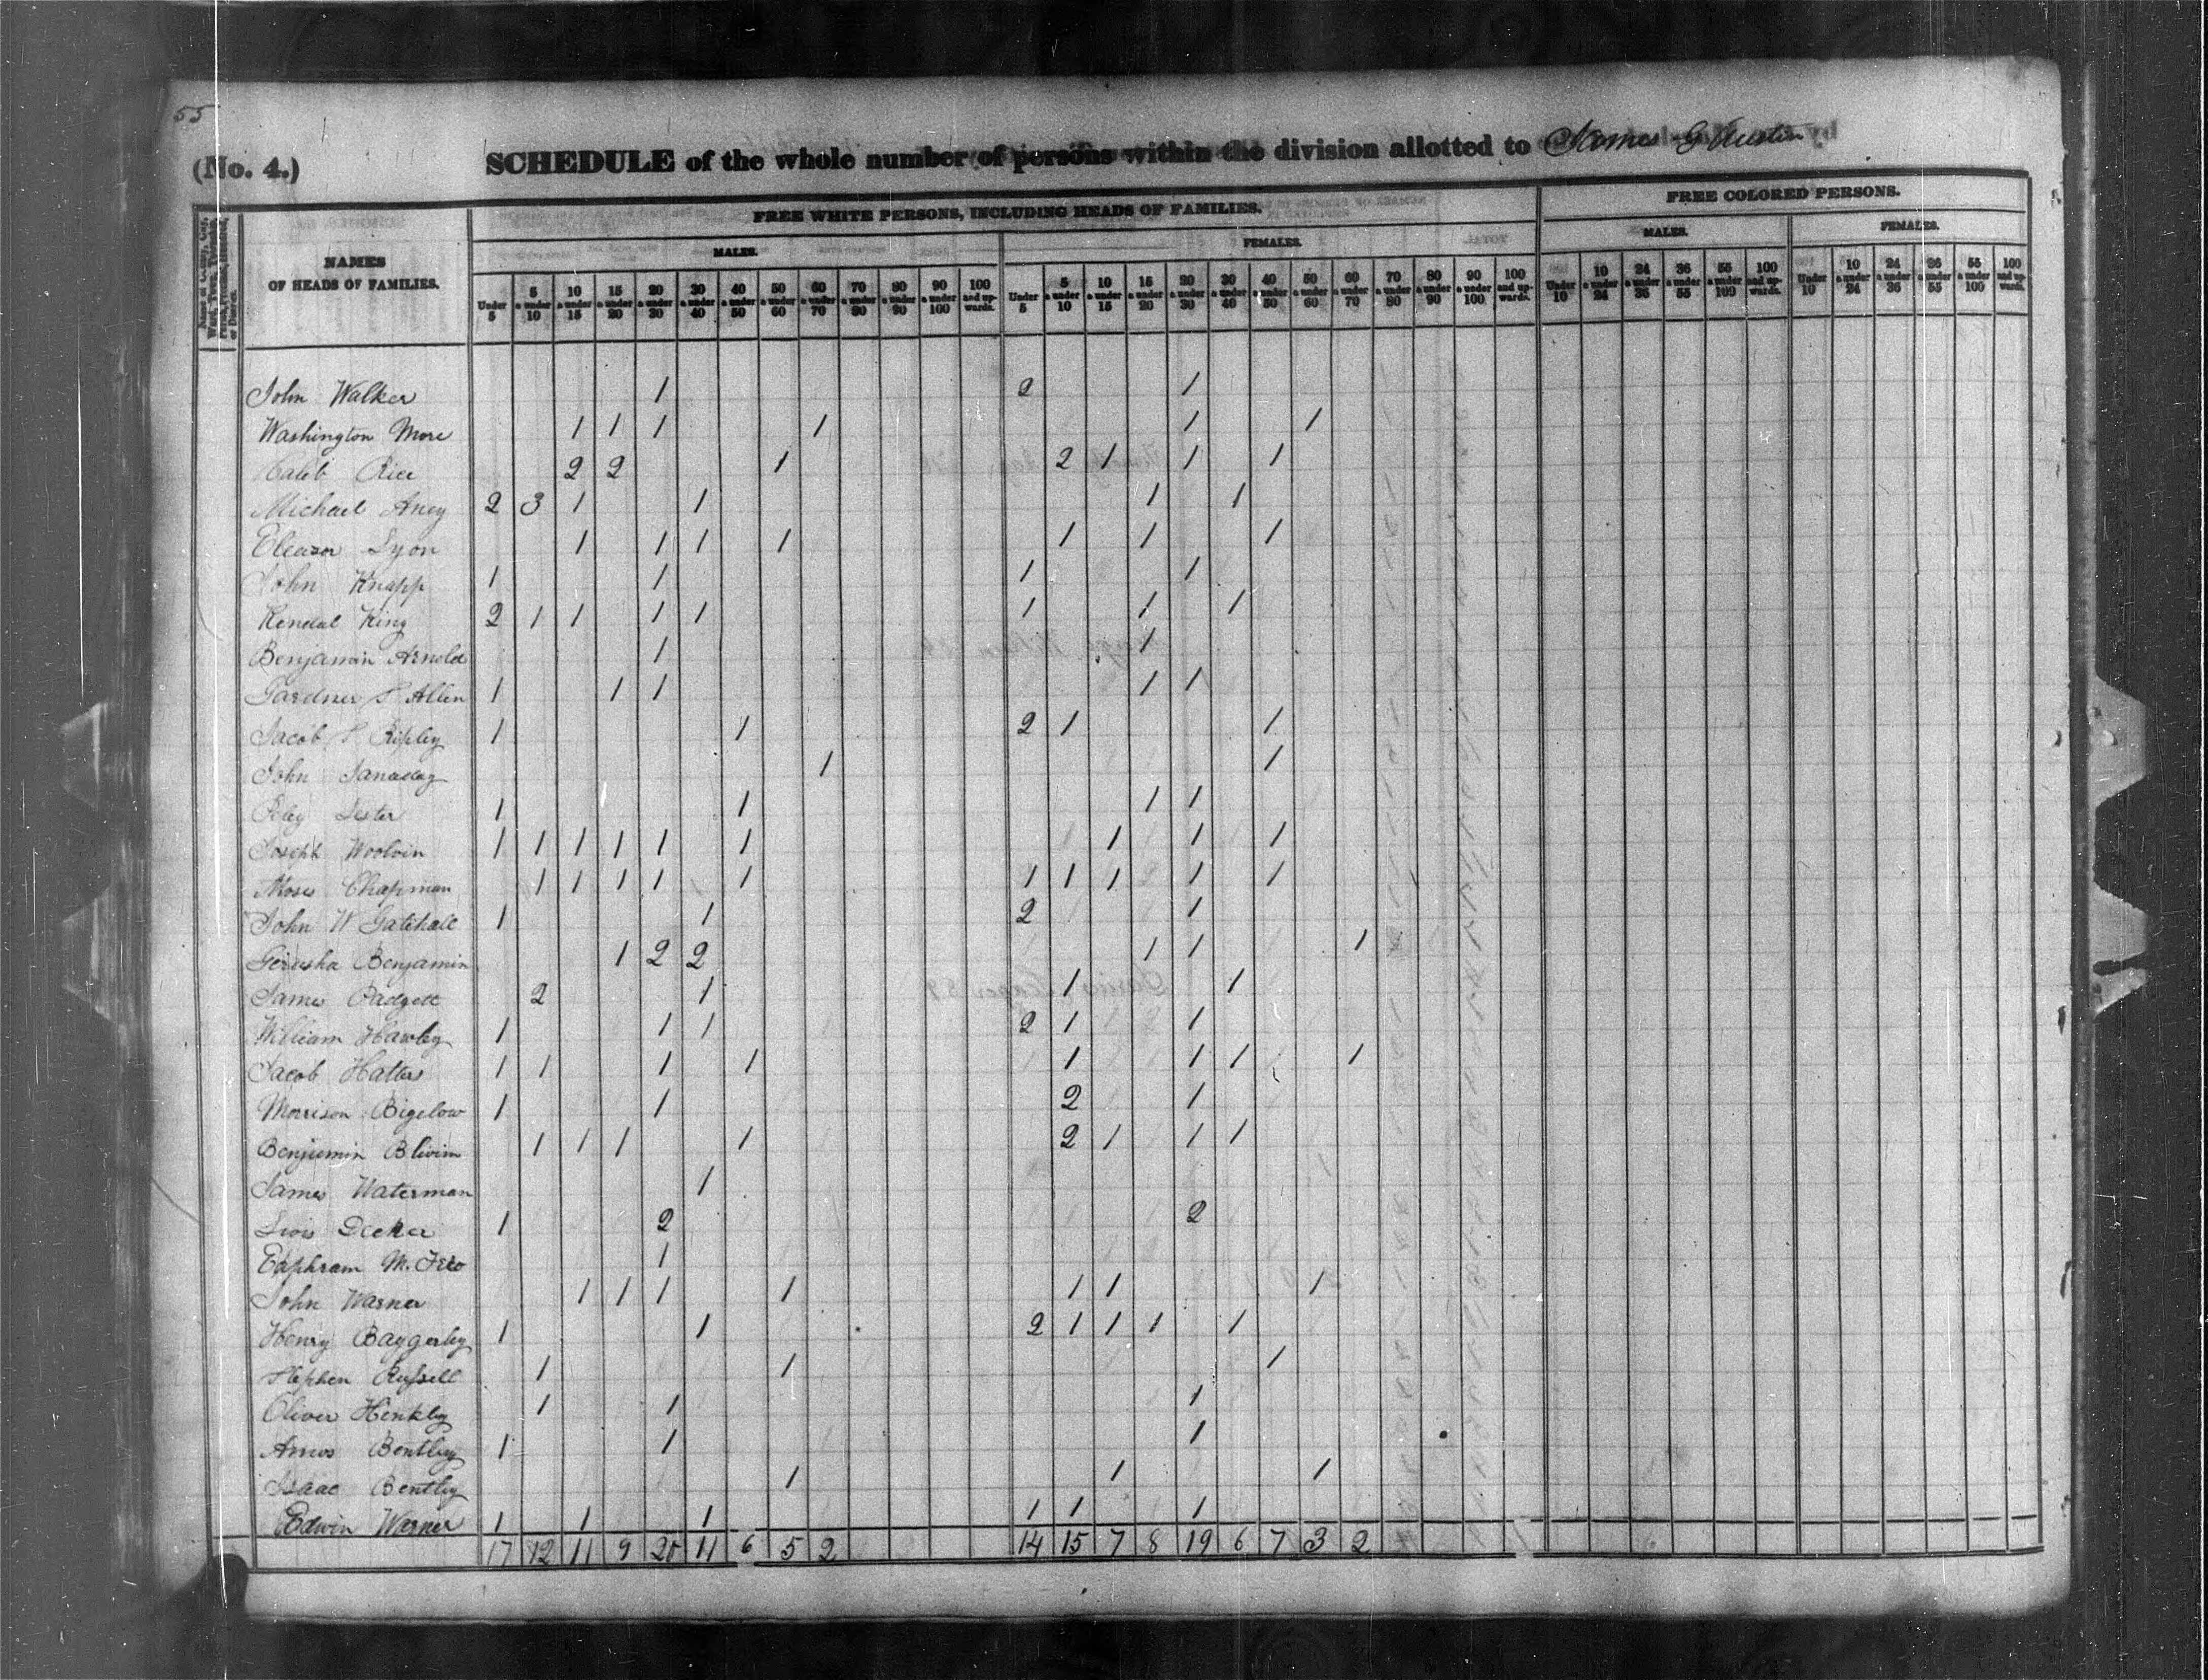 55
(No. 4.) SCHEDULE of the whole number of persons within the division allotted to James G Austin
FREE WHITE PERSONS, INCLUDING HEADS OF FAMILIES. FREE COLORED PERSONS.
MALES. FEMALES. MALES. FEMALES.
NAMES
OF HEADS OF FAMILIES.
Under 5 | 5 & under 10 | 10 & under 15 | 15 & under 20 | 20 & under 30 | 30 & under 40 | 40 & under 50 | 50 & under 60 | 60 & under 70 | 70 & under 80 | 80 & under 90 | 90 & under 100 | 100 and upwards. | Under 5 | 5 & under 10 | 10 & under 15 | 15 & under 20 | 20 & under 30 | 30 & under 40 | 40 & under 50 | 50 & under 60 | 60 & under 70 | 70 & under 80 | 80 & under 90 | 90 & under 100 | 100 and upwards. | Under 10 | 10 & under 24 | 24 & under 36 | 36 & under 55 | 55 & under 100 | 100 and upwards. | Under 10 | 10 & under 24 | 24 & under 36 | 36 & under 55 | 55 & under 100 | 100 and upwards.
John Walker 1 2 1
Washington More 1 1 1 1 1 1
Caleb Rice 2 2 1 2 1 1 1
Michael Aney 2 3 1 1 1 1
Eleazor Lyon 1 1 1 1 1 1 1
John Knapp 1 1 1 1
Kendal King 2 1 1 1 1 1 1 1
Benjamin Arnold 1 1
Gardner S Allen 1 1 1 1 1
Jacob S Ripley 1 1 2 1 1
John 1 1
Peleg Lester 1 1 1 1
Joseph Woolvin 1 1 1 1 1 1 1 1 1
Moses Chapman 1 1 1 1 1 1 1 1 1 1
John W Gatehall 1 1 2 1
Benjamin 1 2 2 1 1 1
James Padgett 2 1 1 1
William Hawley 1 1 1 2 1 1
Jacob Hatter 1 1 1 1 1 1 1 1
Morrison Bigelow 1 1 2 1
Benjamin Blivin 1 1 1 1 2 1 1 1
James Waterman 1
Lwis Decker 1 2 2
Eaphram M. 1
John Warner 1 1 1 1 1 1 1
Henry Baggerley 1 1 2 1 1 1 1
Stephen Russell 1 1 1
Oliver Henkley 1 1 1
Amos Bentley 1 1 1
Isaac Bentley 1 1 1
Edwin Warner 1 1 1 1 1 1
17 12 11 9 20 11 6 5 2 14 15 7 8 19 6 7 3 2